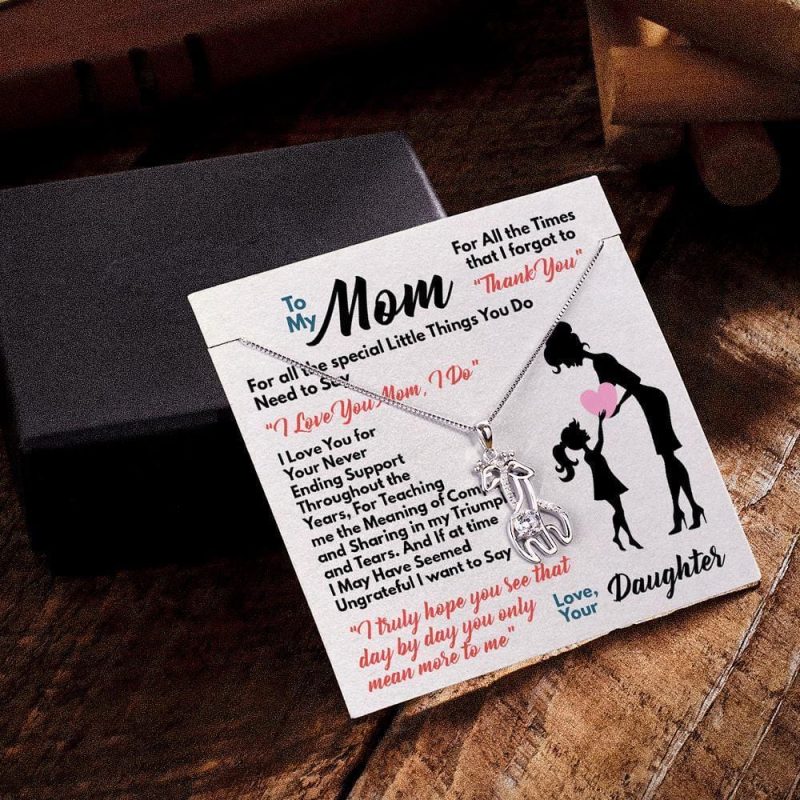 To
My Mom
For All the Times
that I forgot to
"Thank You"
For all the special Little Things You Do
Need to Say
"I Love You Mom, I Do"
I Love You for
Your Never
Ending Support
Throughout the
Years, For Teaching
me the Meaning of
and Sharing in my
and Tears. And If at time
I May Have Seemed
Ungrateful I want to Say
"I truly hope you see that
day by day you only
mean more to me"
Love,
Your Daughter